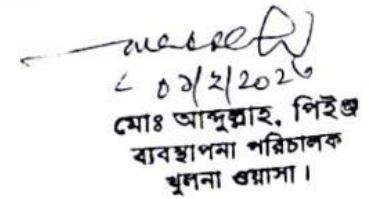 মোঃ আব্দুল্লাহ, পিইঞ্জ
ব্যবস্থাপনা পরিচালক
খুলনা ওয়াসা।